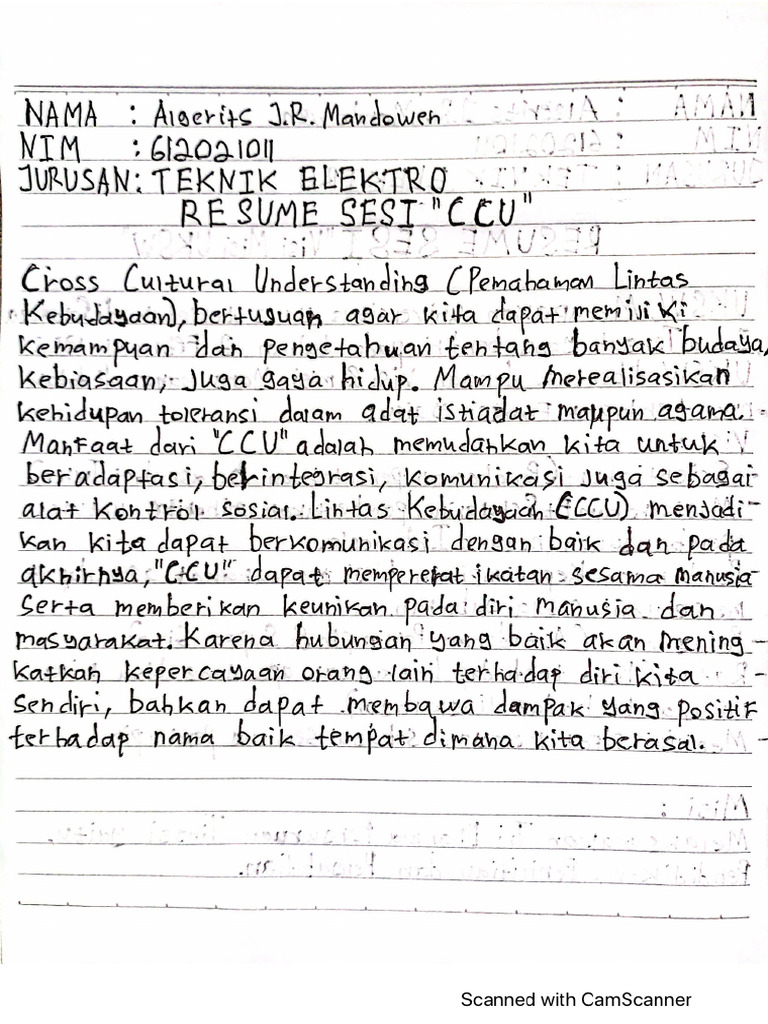 NAMA : Algerits J.R. Mandowen
NIM : 612021011
JURUSAN: TEKNIK ELEKTRO
RESUME SESI "CCU"
Cross Cultural Understanding (Pemahaman Lintas
Kebudayaan), bertujuan agar kita dapat memiliki
kemampuan dan pengetahuan tentang banyak budaya,
kebiasaan, juga gaya hidup. Mampu merealisasikan
kehidupan toleransi dalam adat istiadat maupun agama.
Manfaat dari "CCU" adalah memudahkan kita untuk
beradaptasi, berintegrasi, komunikasi juga sebagai
alat kontrol sosial. Lintas Kebudayaan (CCU) menjadi-
kan kita dapat berkomunikasi dengan baik dan pada
akhirnya, "CCU" dapat mempererat ikatan sesama manusia
serta memberikan keunikan pada diri manusia dan
masyarakat. Karena hubungan yang baik akan mening-
katkan kepercayaan orang lain terhadap diri kita
sendiri, bahkan dapat membawa dampak yang positif
terhadap nama baik tempat dimana kita berasal.
Scanned with CamScanner